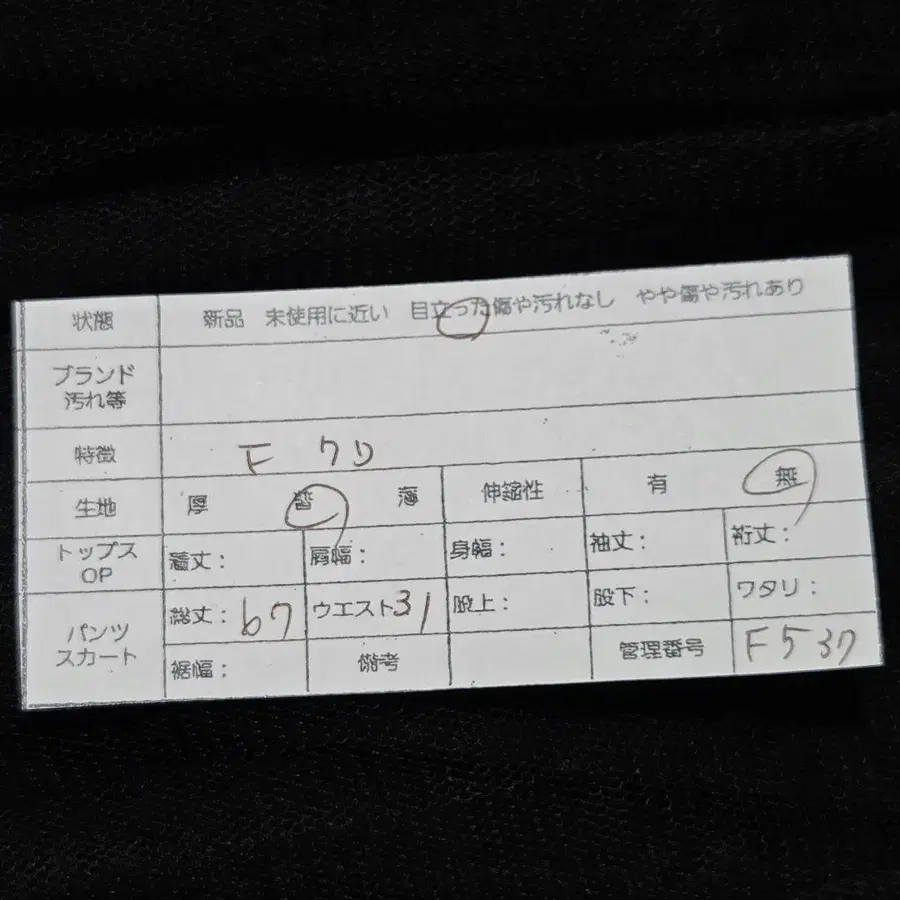 状態 新品 未使用に近い 目立った傷や汚れなし やや傷や汚れあり
ブランド
汚れ等
特徴 F
生地 厚 普 薄 伸縮性 有 無
トップス
OP 着丈: 肩幅: 身幅: 袖丈: 裄丈:
パンツ
スカート 総丈: 67 ウエスト31 股上: 股下: ワタリ:
裾幅: 備考 管理番号 F537